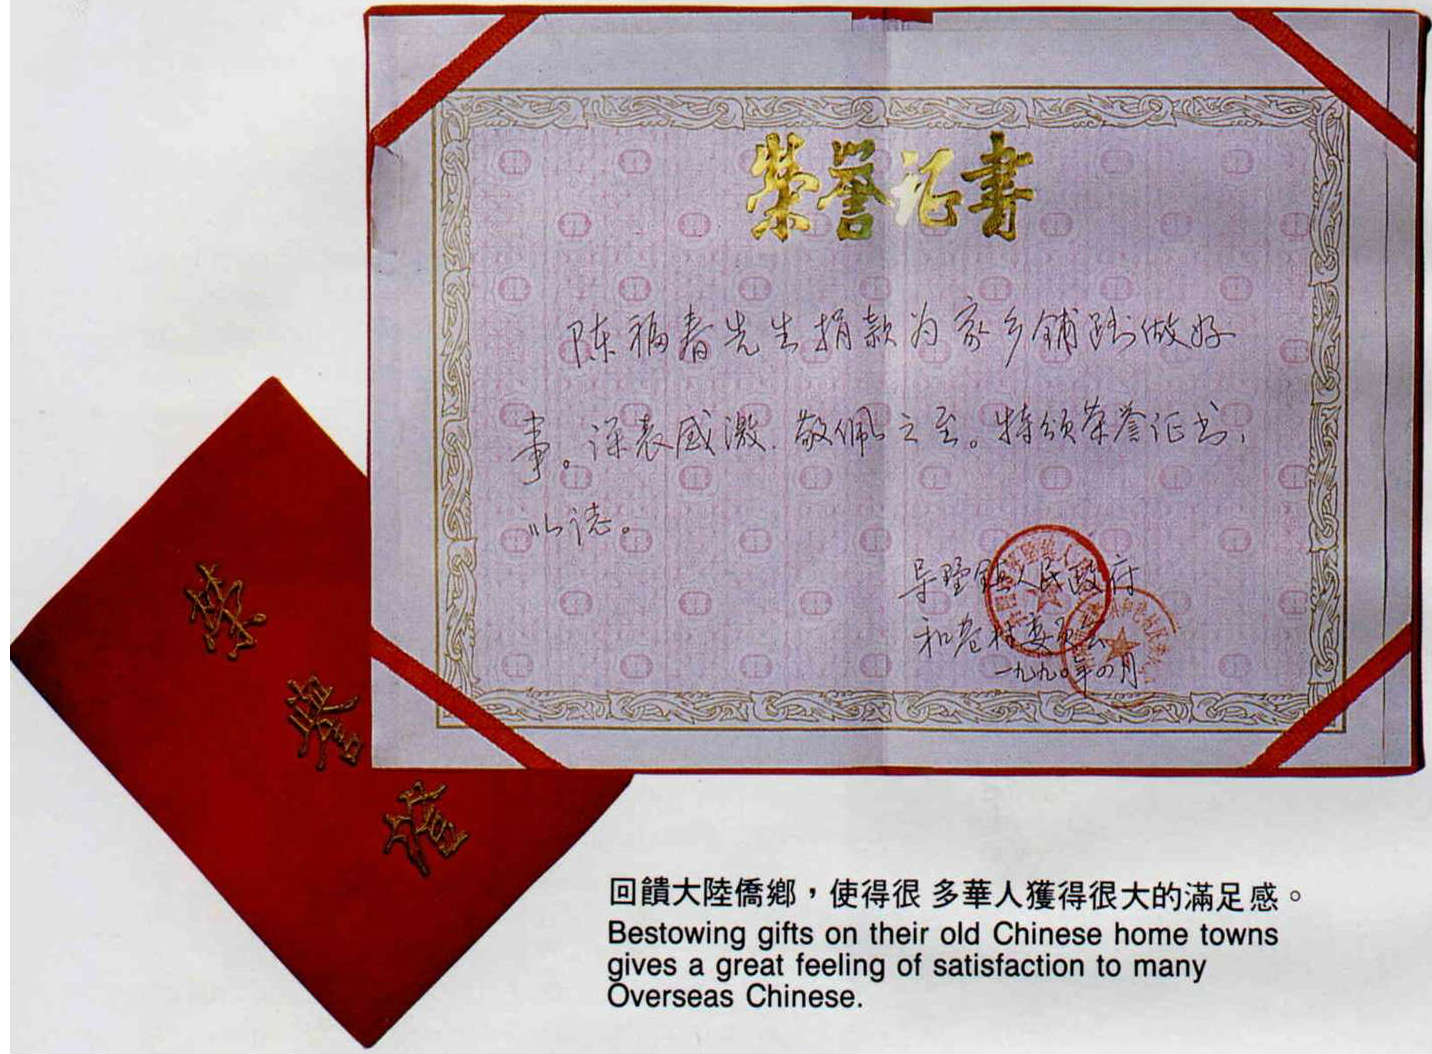 榮誉证書
陈福春先生捐款为家乡铺路做好
事。深表感激.敬佩之至。特颁荣誉证书,
以志。
导墅镇人民政府
和巷村委员会
一九九〇年四月
荣誉证
回饋大陸僑鄉，使得很多華人獲得很大的滿足感。
Bestowing gifts on their old Chinese home towns
gives a great feeling of satisfaction to many
Overseas Chinese.